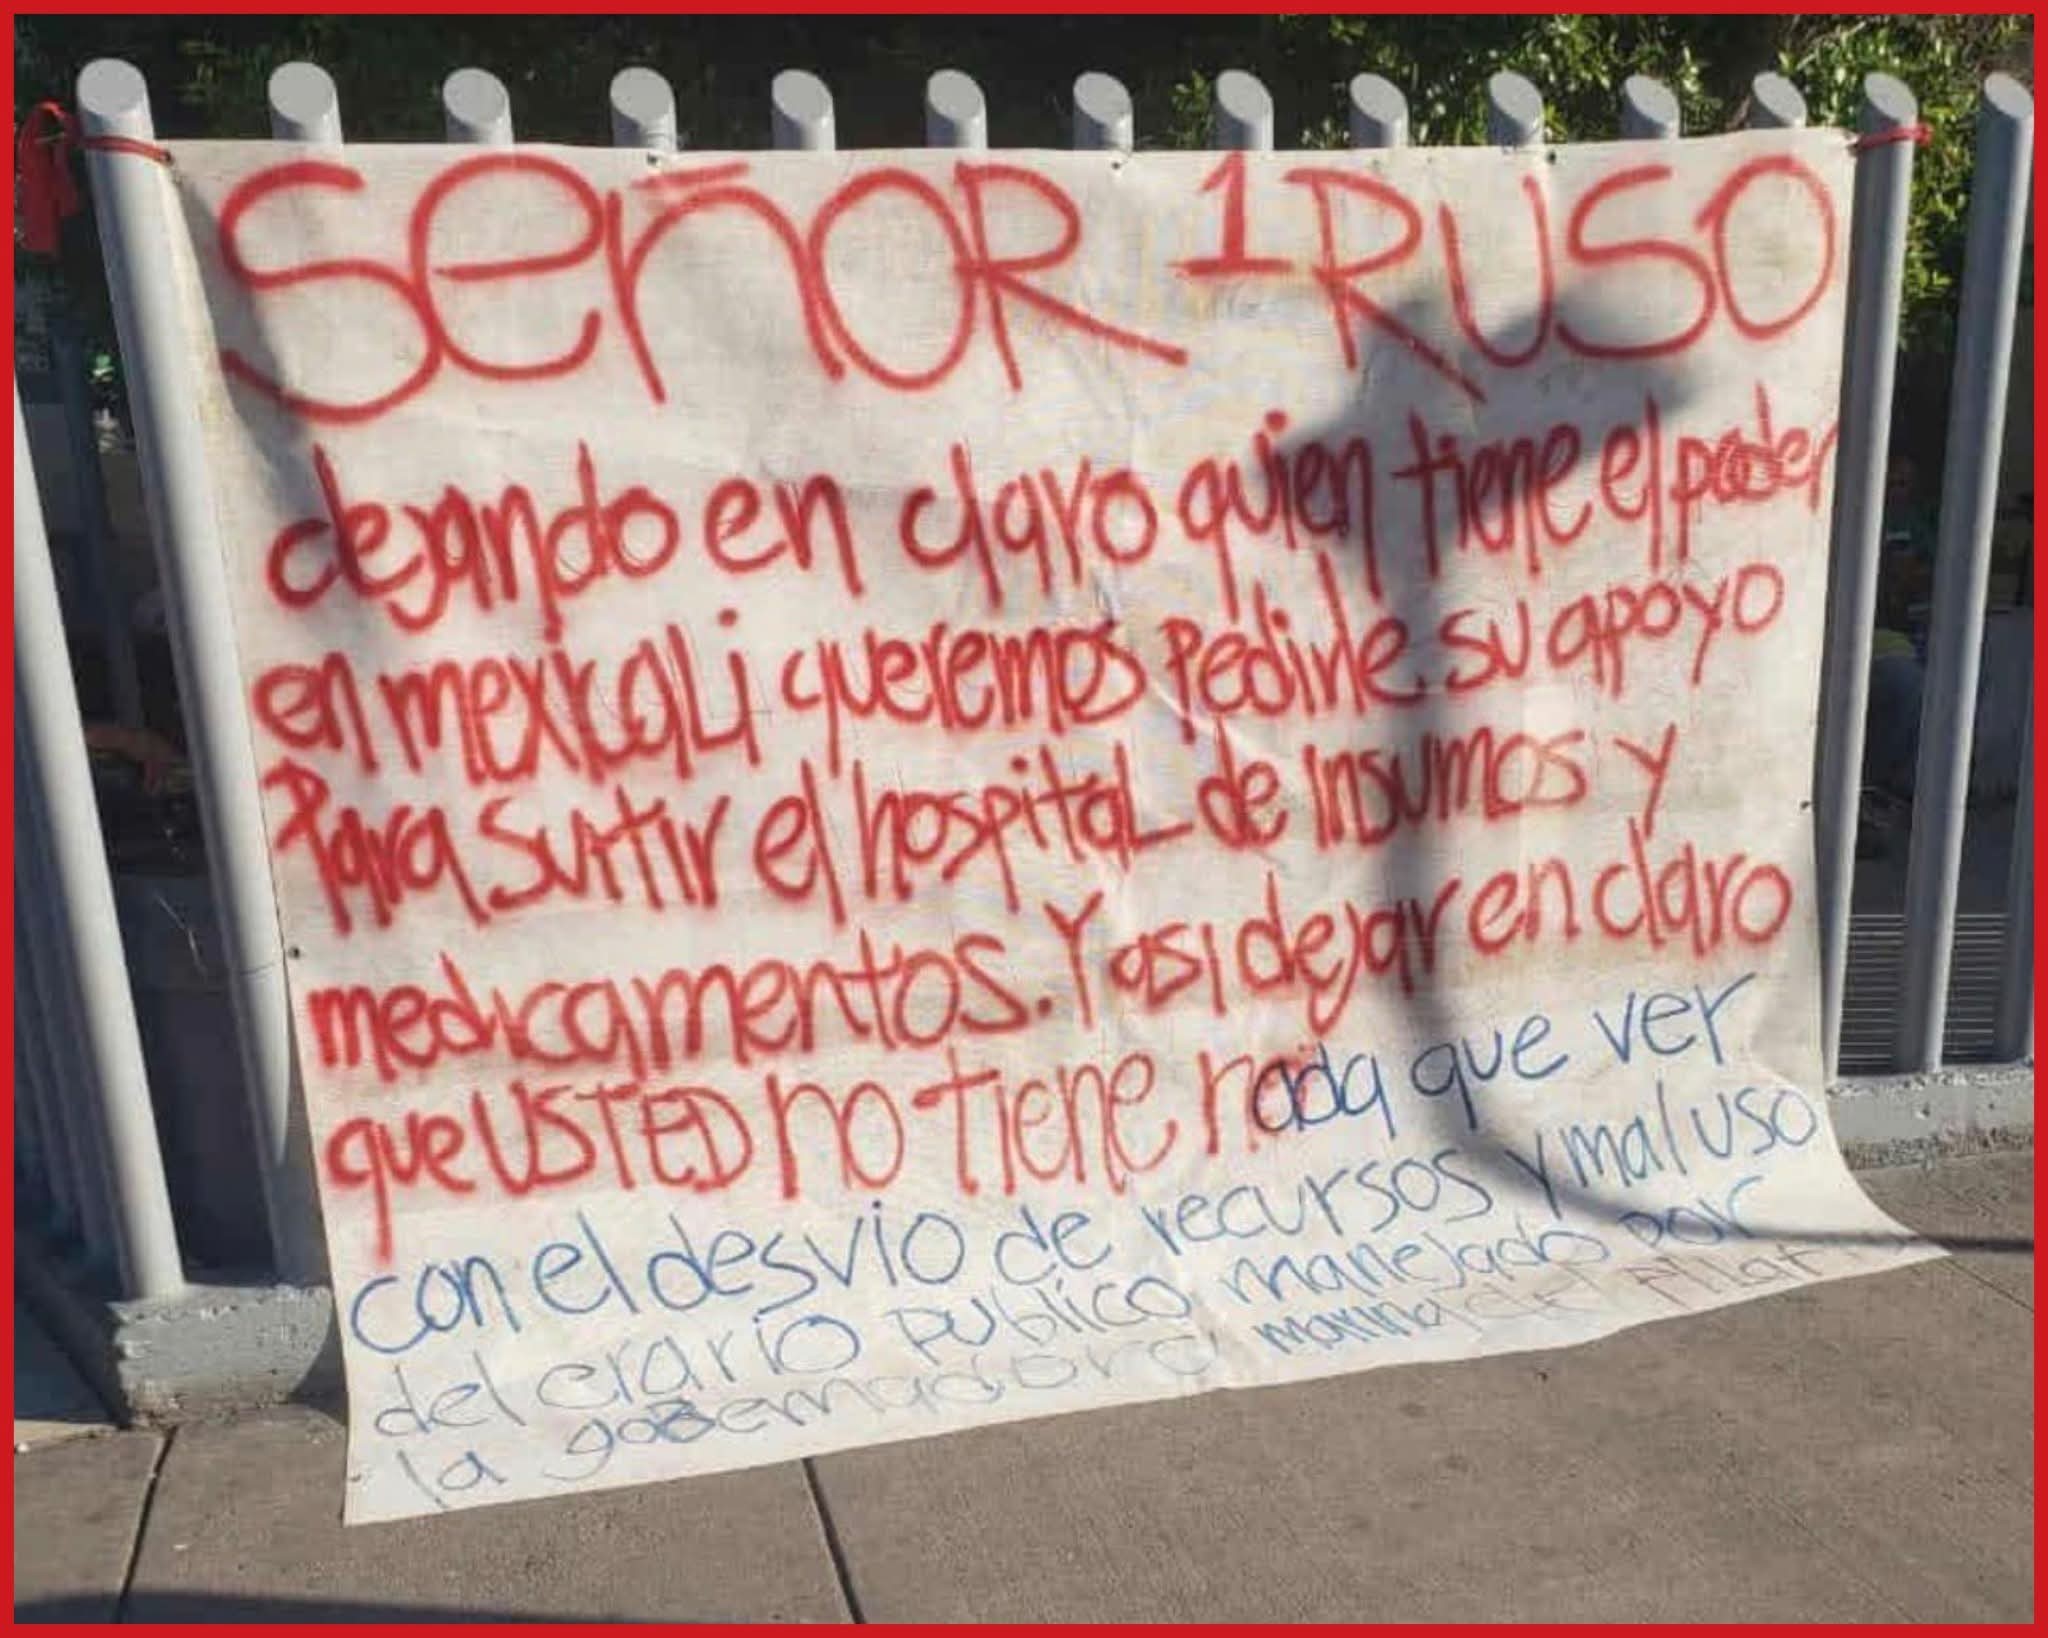 señOR 1RUSO
dejando en claro quien tiene el poder
en mexicaLi queremos Pedirle su apoyo
Para Surtir el hospitaL de Insumos y
medicamentos. Y asi dejar en claro
que USTED no tiene nada que ver
con el desvio de recursos y mal uso
del erario publico manejado por
la gobernadora marina del Pilar